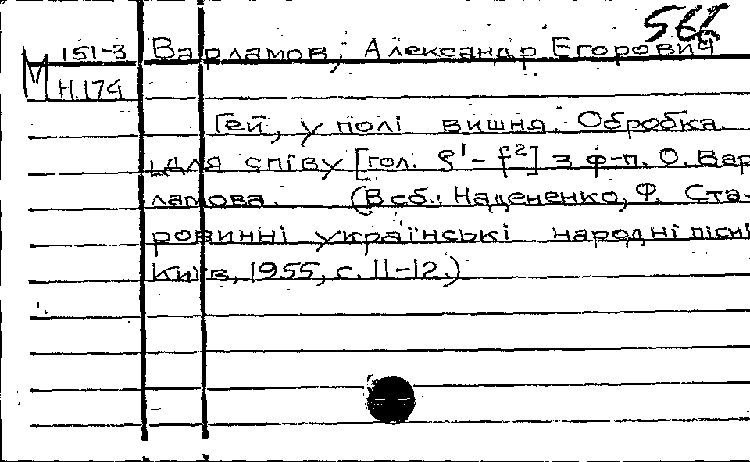 566
М 151-3 Варламов, Александр Егорович
Н.174
Гей, у полі вишня. Обробка
для співу [гол. g¹ - f²] з ф-п. О. Вар-
ламова. (В сб.: Надененко, Ф. Ста-
ровинні українські народні пісні
Київ, 1955, с. 11-12.)